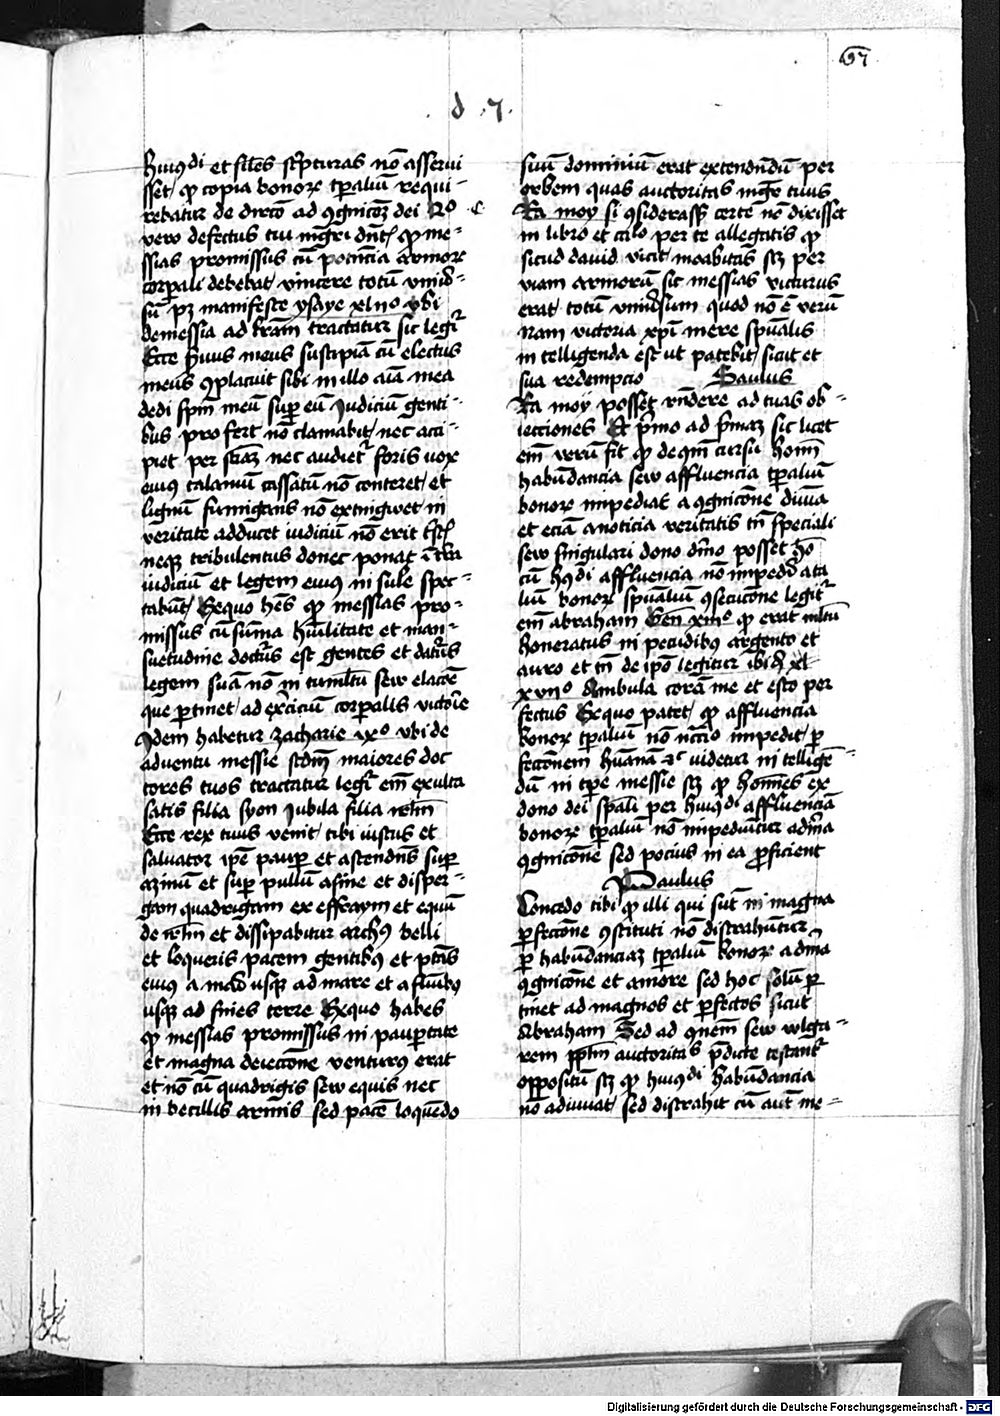 97
d . 7 .
huiꝰdi et siles scpturas nō asserui
sset ꝙ copia bonoꝝ tpaliū requi-
rebatur de dircō ad ꝯgnicōꝫ dei
vero defectus tui mgri ꝙ me-
ssias promissus cū potencia armoꝝ
corpali debebat vincere totū vniūˀ-
sū pꝫ manifeste ysaye xlııº vbi
demessia ad lr̄am tractatur sic legīt
Ecce ẜuus meus suscipiā eū electus
meus ꝯplacuit sibi in illo aīa mea
dedi spm̄ meū sup eū Iudiciū genti-
bus pro fert nō clamabit nec acci-
piet per nec audiet foris vox
eius calamū cassatū nō conteret et
lignū fumigans nō extingwet in
veritate adducet iudiciū nō erit
neqꝫ tribulentus donec ponat ī tr̄a
iudiciū et legem eius insule spec-
tabūt Exquo hēs ꝙ messias pro-
missus cū sūma hūilitate et man-
suetudine doctūs est gentes et datūs
legem suā nō in tumltu sew elacōe
que ptinet ad exciciū corpalis victorie
Idem habetur zacharie ixº vbi de
aduentu messie scdm maiores doc
tores tuos tractatur legīt em̄ exulta
satis filia syon Iubila filia irlm̄
Ecce rex tuus venit tibi iustus et
saluator ipē paup et ascendēs sup
azinū et sup pullū asine et disper-
gam quadrigam ex effraym et equū
de irlm̄ et dissipabitur archꝰ belli
et loqueris pacem gentibꝰ et ptās
eius a mari vsqꝫ ad mare et a flūibꝰ
vsqꝫ ad fines terre Exquo habes
ꝙ messias promissus in paupertate
et magna deieccōne venturus erat
et nō cū quadrigis sew equis nec
in becillis armis sed pacē loquēdo
suū dominiū erat extendndū per
orbem quas auctoritas mgr̄ tuus
Ra moy si ꝯsiderass̄ certe nō dixisset
in libro et calo per te allegatis ꝙ
sicud dauid vicit moabitas scꝫ per
viam armorū sic messias victurus
erat totū vniūsum quod nō ē verū
nam victoria xpī mere spūalis
in telligenda est ut patebit sicut et
sua redempcio Saulus
Ra moy posset rn̄dere ad tuas ob-
iecciones Et pmo ad pmaꝫ sic licet
em̄ verū sit ꝙ de qm̄ cursu homī
habūdancia sew affluencia tpaliū
bonoꝝ impediat a ꝯgnicōne diuīa
et eciā a noticia veritatis tn̄ speciali
sew singulari dono dīno posset hō
cū hꝰdi affluencia nō impediri a ta
liū bonoꝝ spūaliū ꝯsecucōne legit
em̄ abraham Gen̄ xiiiº ꝙ erat mltū
honeratus in pecudibus argento et
auro et tn̄ de ipō legitur ibid̄
xviiº Ambula corā me et esto per
fectus Exquo patet ꝙ affluencia
bonoꝝ tpaliū nō impedit p
feccōnem hūanā ꝛc videtur in telligē-
dū in tpe messie scꝫ ꝙ homēs ex
dono dei spāli per huiꝰdi affluenciā
bonoꝝ tpaliū nō impediūtur adīna
ꝯgnicōne sed pocius in ea ꝓficient
Paulus
Concedo tibi ꝙ illi qui sūt in magna
pfeccōne ꝯstituti nō distrahūtur
p habūdanciaꝫ tpaliū bonoꝝ a dīna
ꝯgnicōne et amore sed hoc solū p
tinet ad magnos et pfectos sicut
Abraham Sed ad ꝯmem sew wlga-
rem pplm auctoritas pdicte testant
oppositū scꝫ ꝙ huiꝰdi habūdancia
nō adiuuat sed distrahit cū aut me-
Digitalisierung gefördert durch die Deutsche Forschungsgemeinschaft - DFG